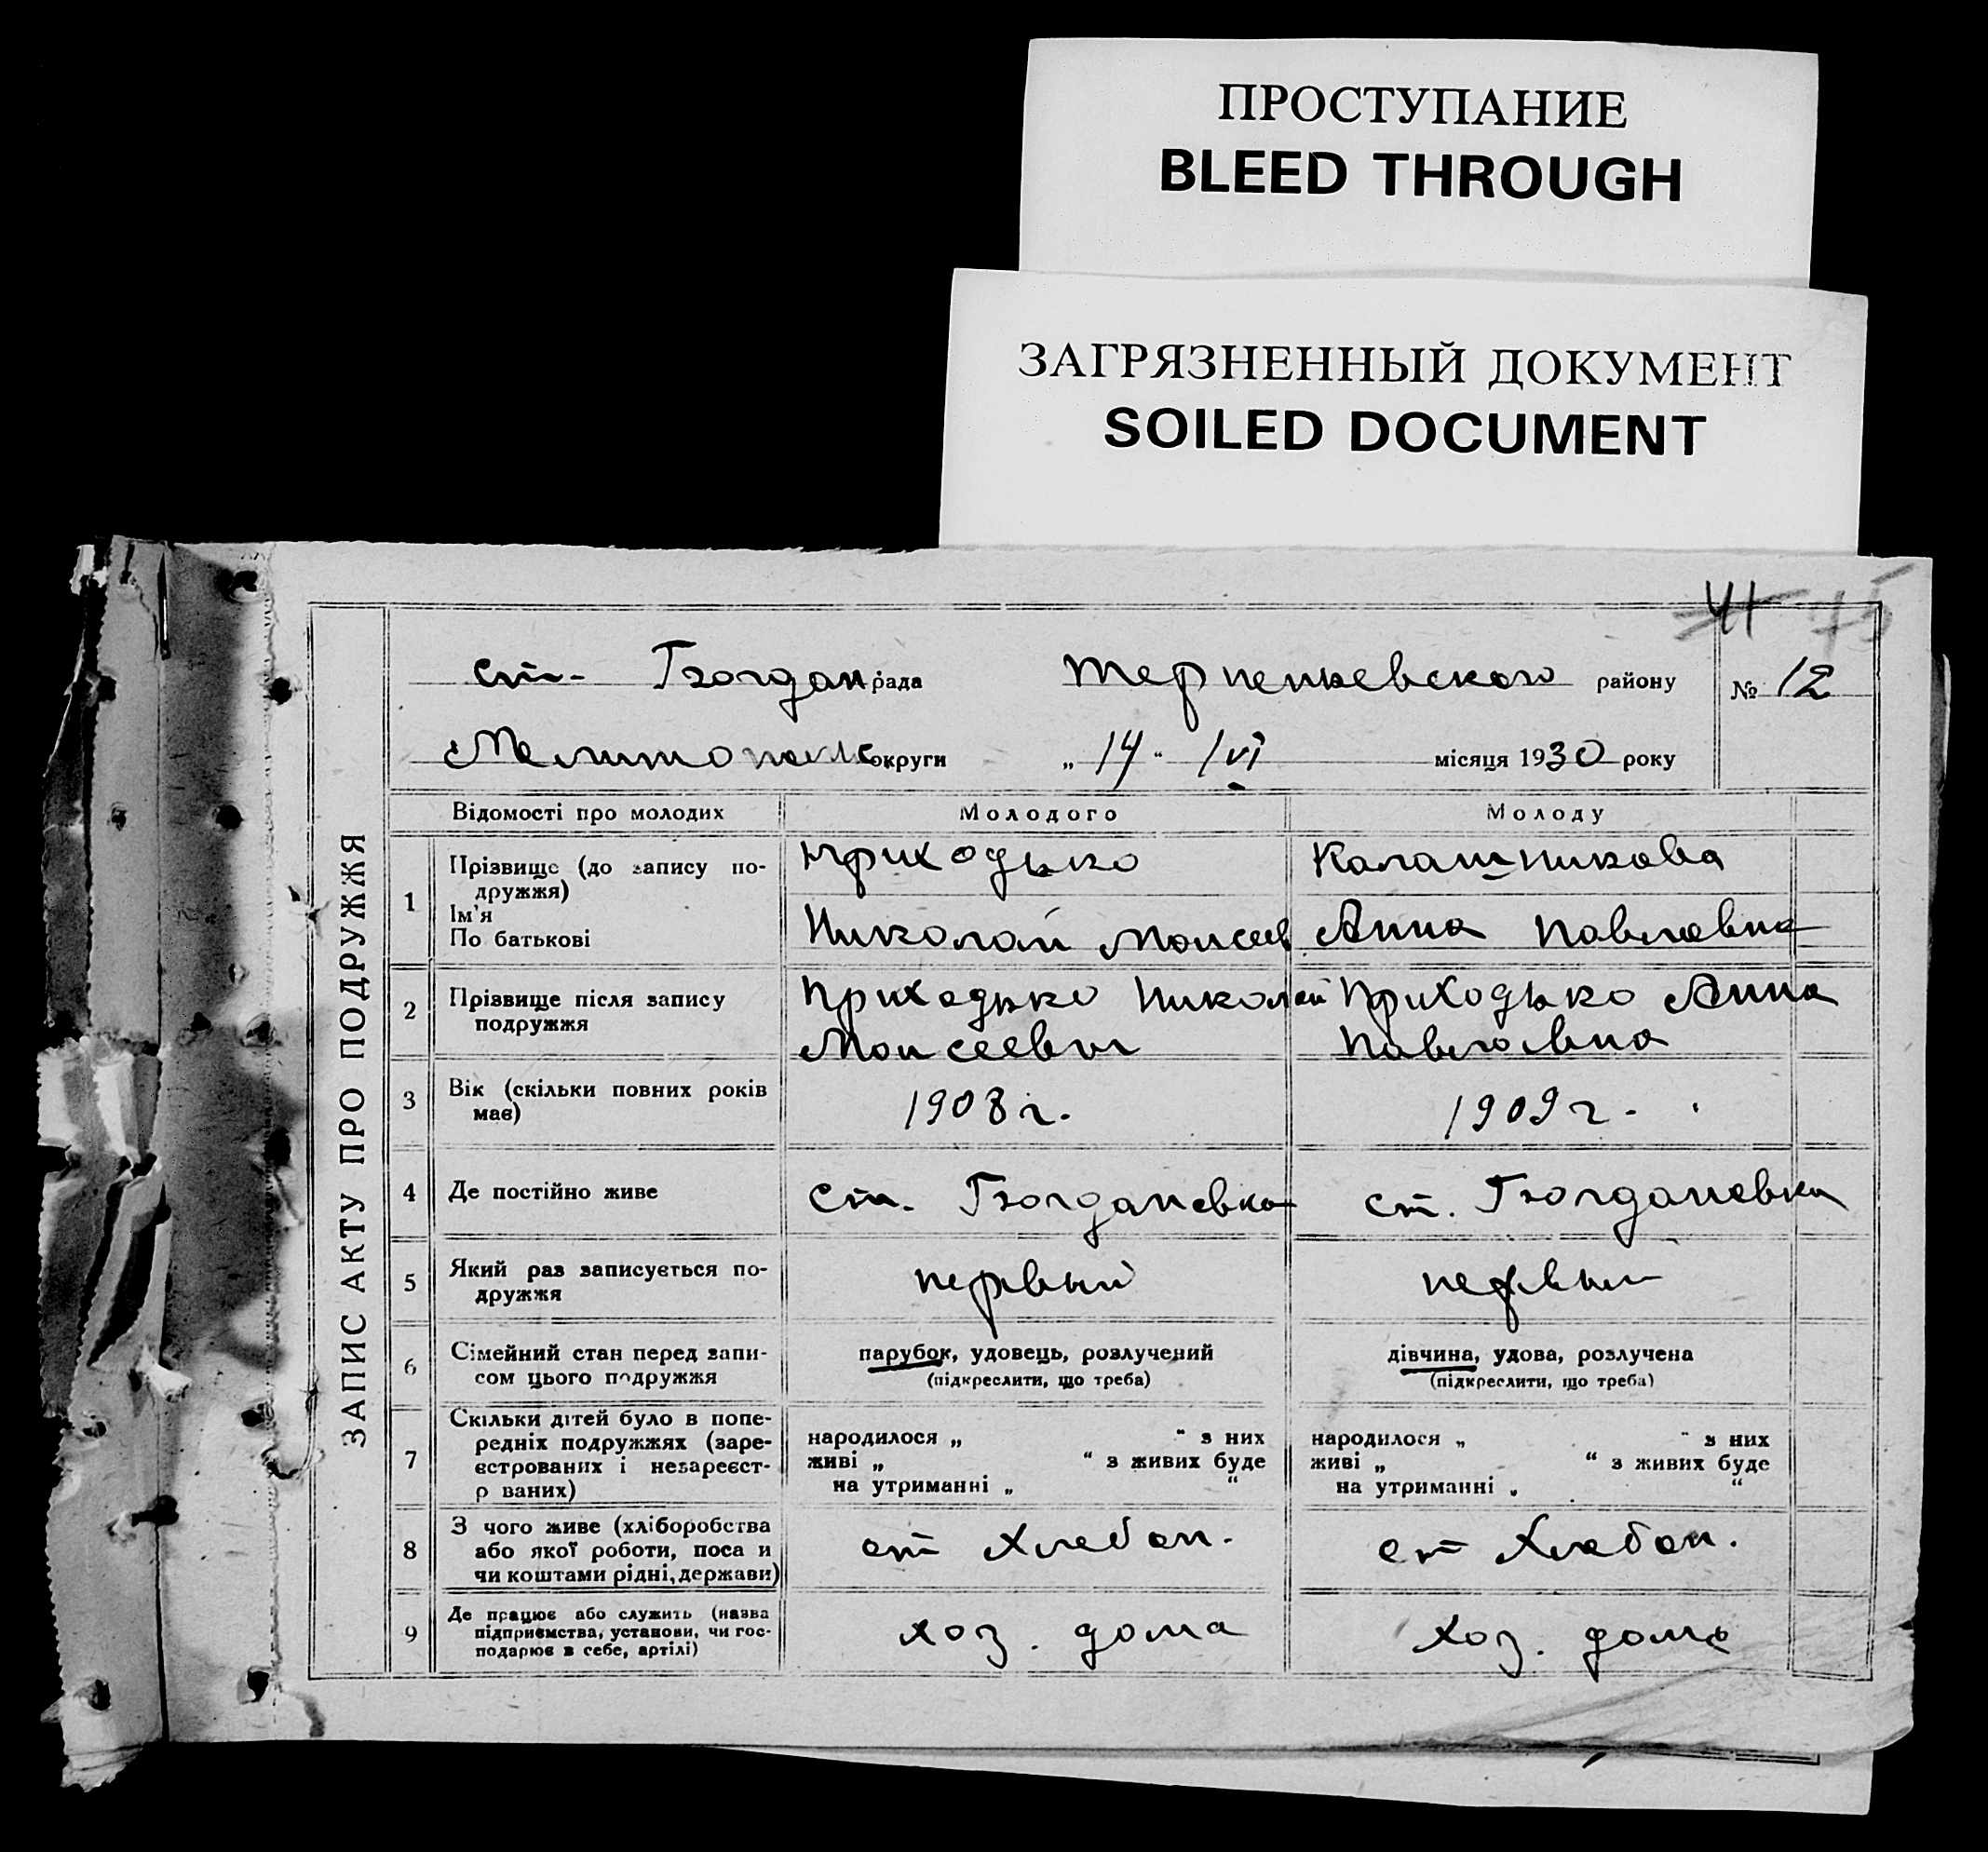 ПРОСТУПАНИЕ
BLEED THROUGH
ЗАГРЯЗНЕННЫЙ ДОКУМЕНТ
SOILED DOCUMENT
41 75
ЗАПИС АКТУ ПРО ПОДРУЖЖЯ
ст. Богдан рада Терпеньевского району № 12
Мелитопольс округи „14“ VI місяця 1930 року
Відомості про молодих Молодого Молоду
1 Прізвище (до запису по-
дружжя)
Ім'я
По батькові
Приходько
Николай Моисеев
Калашникова
Анна Павловна
2 Прізвище після запису
подружжя
Приходько Николай
Моисеевич
Приходько Анна
Павловна
3 Вік (скільки повних років
має)
1908 г.
1909 г.
4 Де постійно живе
ст. Богдановка
ст. Богдановка
5 Який раз записується по-
дружжя
первый
первый
6 Сімейний стан перед запи-
сом цього подружжя
парубок, удовець, розлучений
(підкреслити, що треба)
дівчина, удова, розлучена
(підкреслити, що треба)
7 Скільки дітей було в попе-
редніх подружжях (заре-
єстрованих і незареєст-
р ваних)
народилося „ “ з них
живі „ “ з живих буде
на утриманні „ “
народилося „ “ з них
живі „ “ з живих буде
на утриманні „ “
8 З чого живе (хліборобства
або якої роботи, поса и
чи коштами рідні, держави)
от Хлебоп.
от Хлебоп.
9 Де працює або служить (назва
підприємства, установи, чи гос-
подарює в себе, артілі)
хоз. дома
хоз. дома